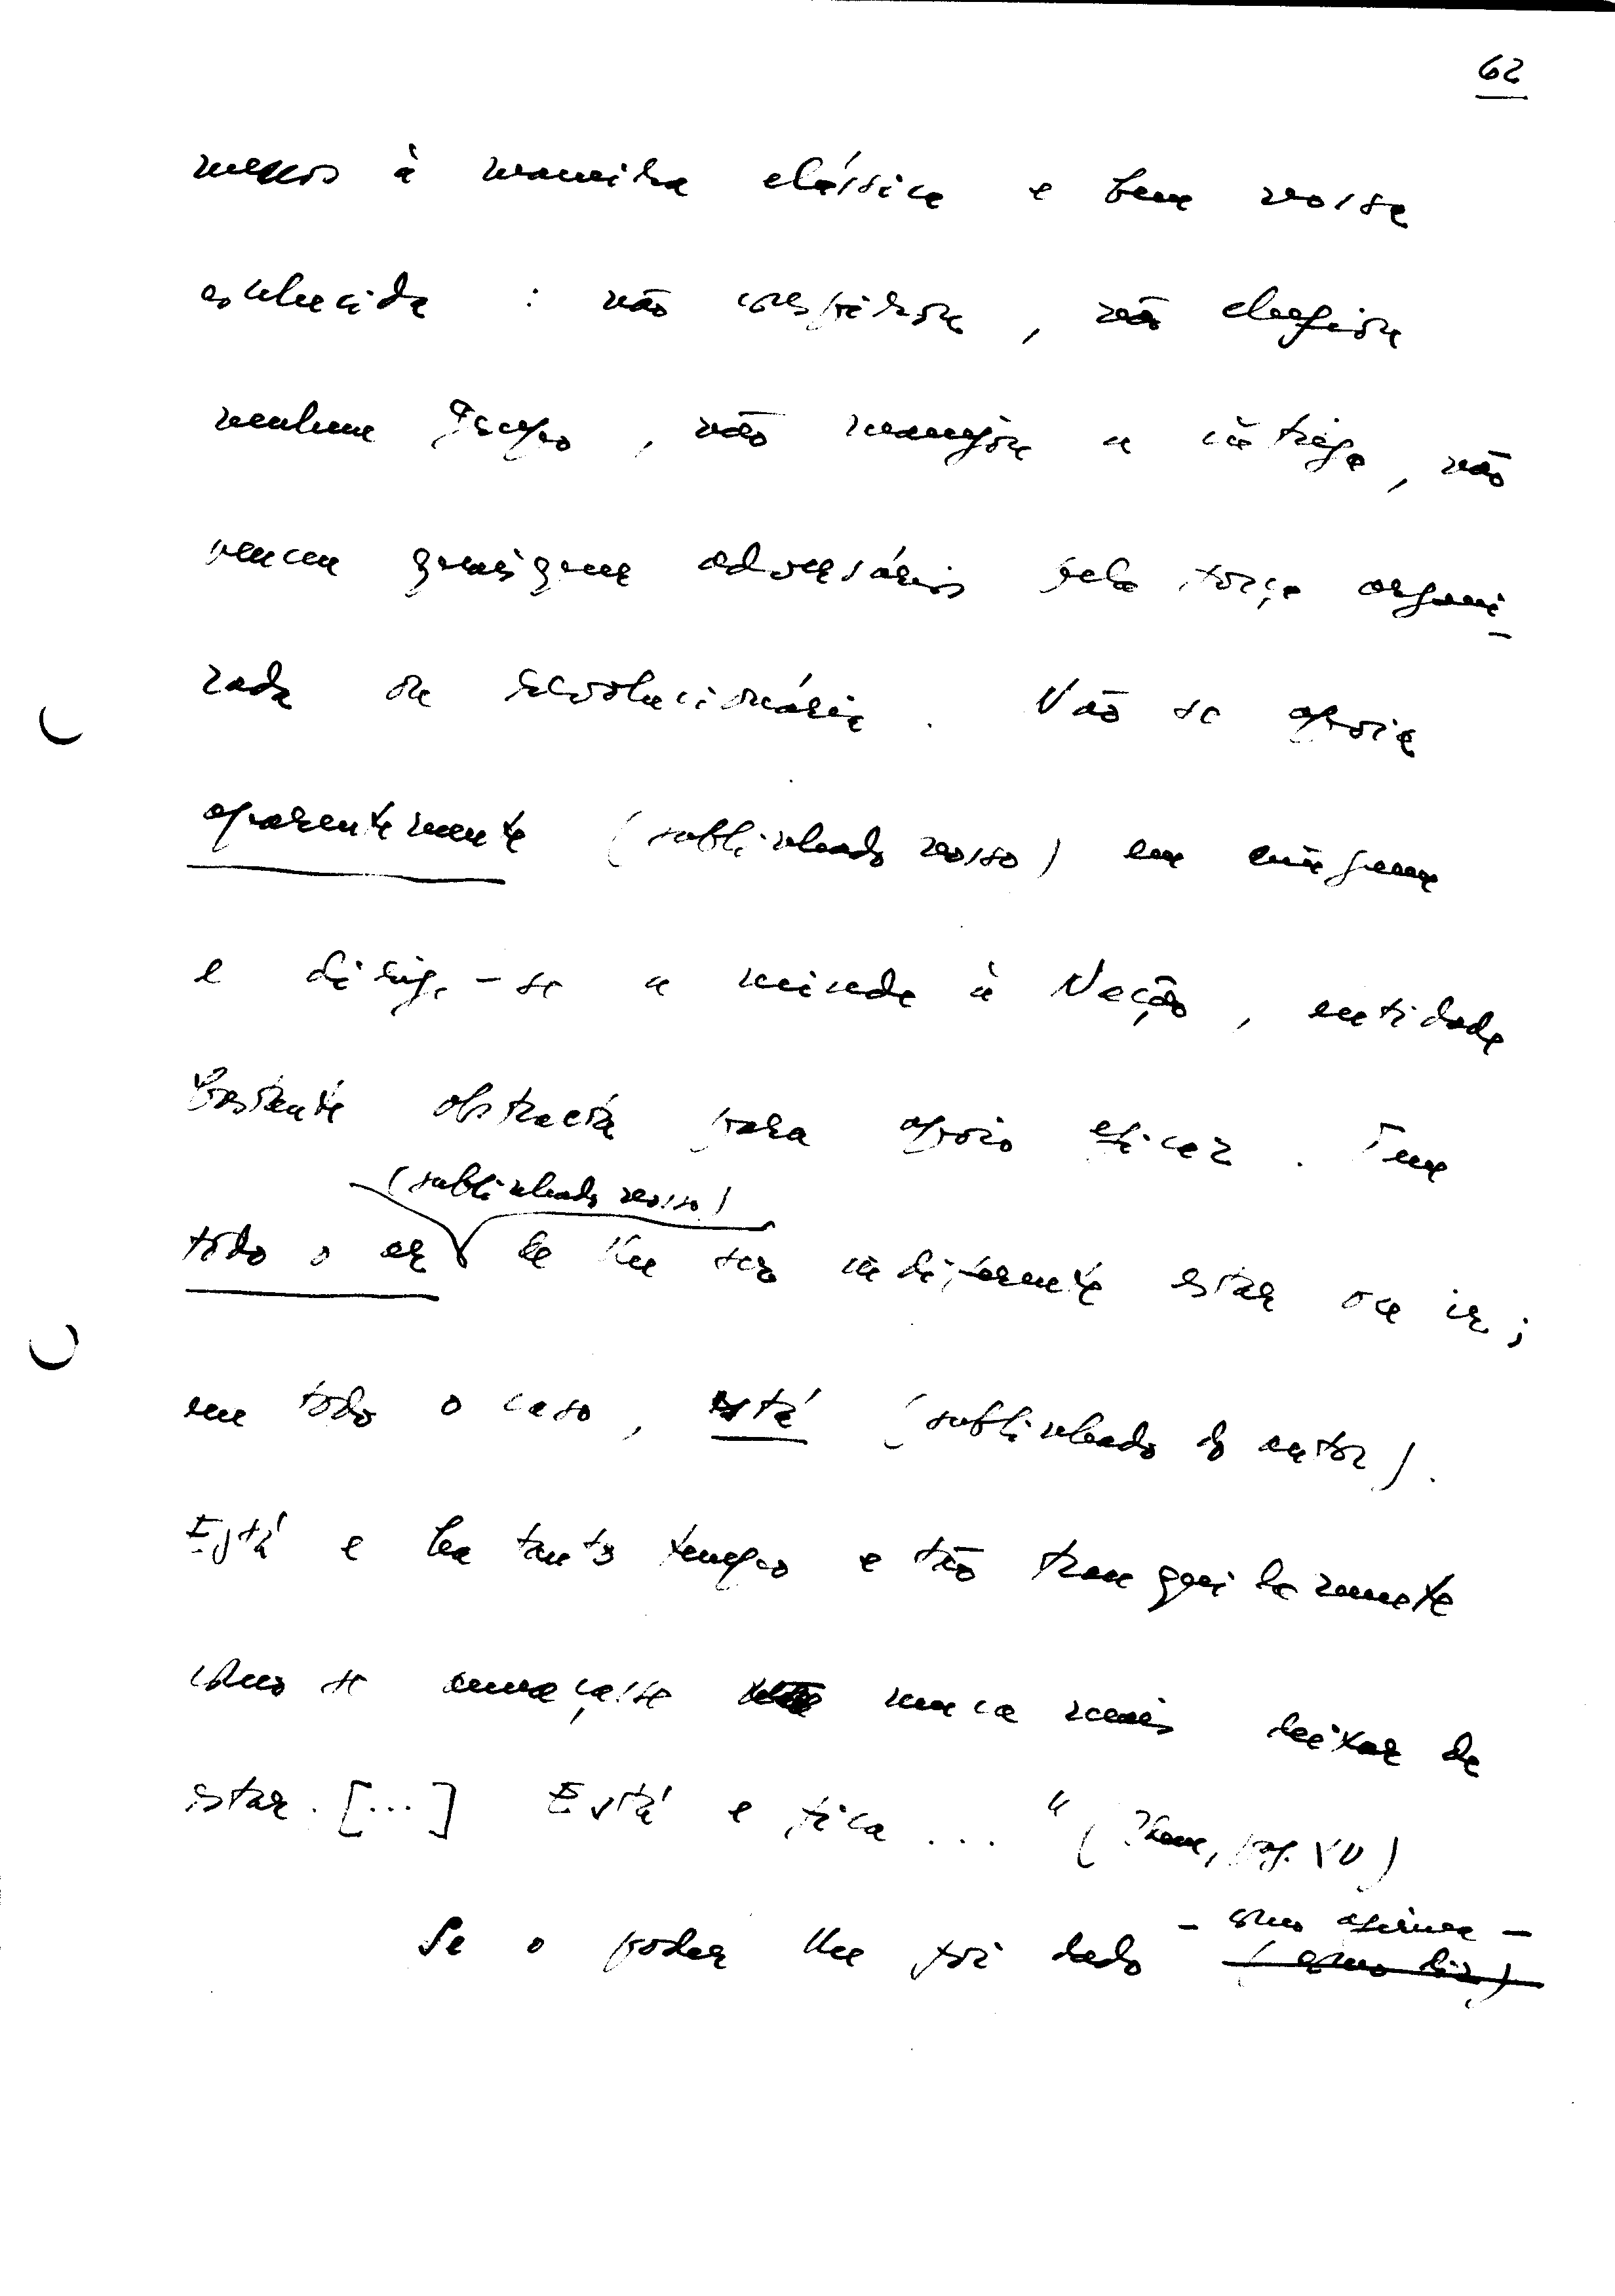 62
menos à maneira clássica e bem nossa
conhecida : não conspirou, não chefiou
nenhum grupo, não manejou a intriga, não
venceu quaisquer adversários pela força organi-
zada ou revolucionária. Não se apoia
aparentemente (sublinhado nosso) em ninguém
e dirige-se a miude à Nação, entidade
bastante abstracta para apoio eficaz. Tem
(sublinhado nosso)
todo o ar de lhe ser indiferente estar ou ir;
em todo o caso, está (sublinhado do autor).
Está e há tanto tempo e tão tranquilamente
como se ameaçasse nunca mais deixar de
estar. [...] Está e fica ... " (Idem, pág. XV)
- como afirma -
Se o poder lhe foi dado (como diz)